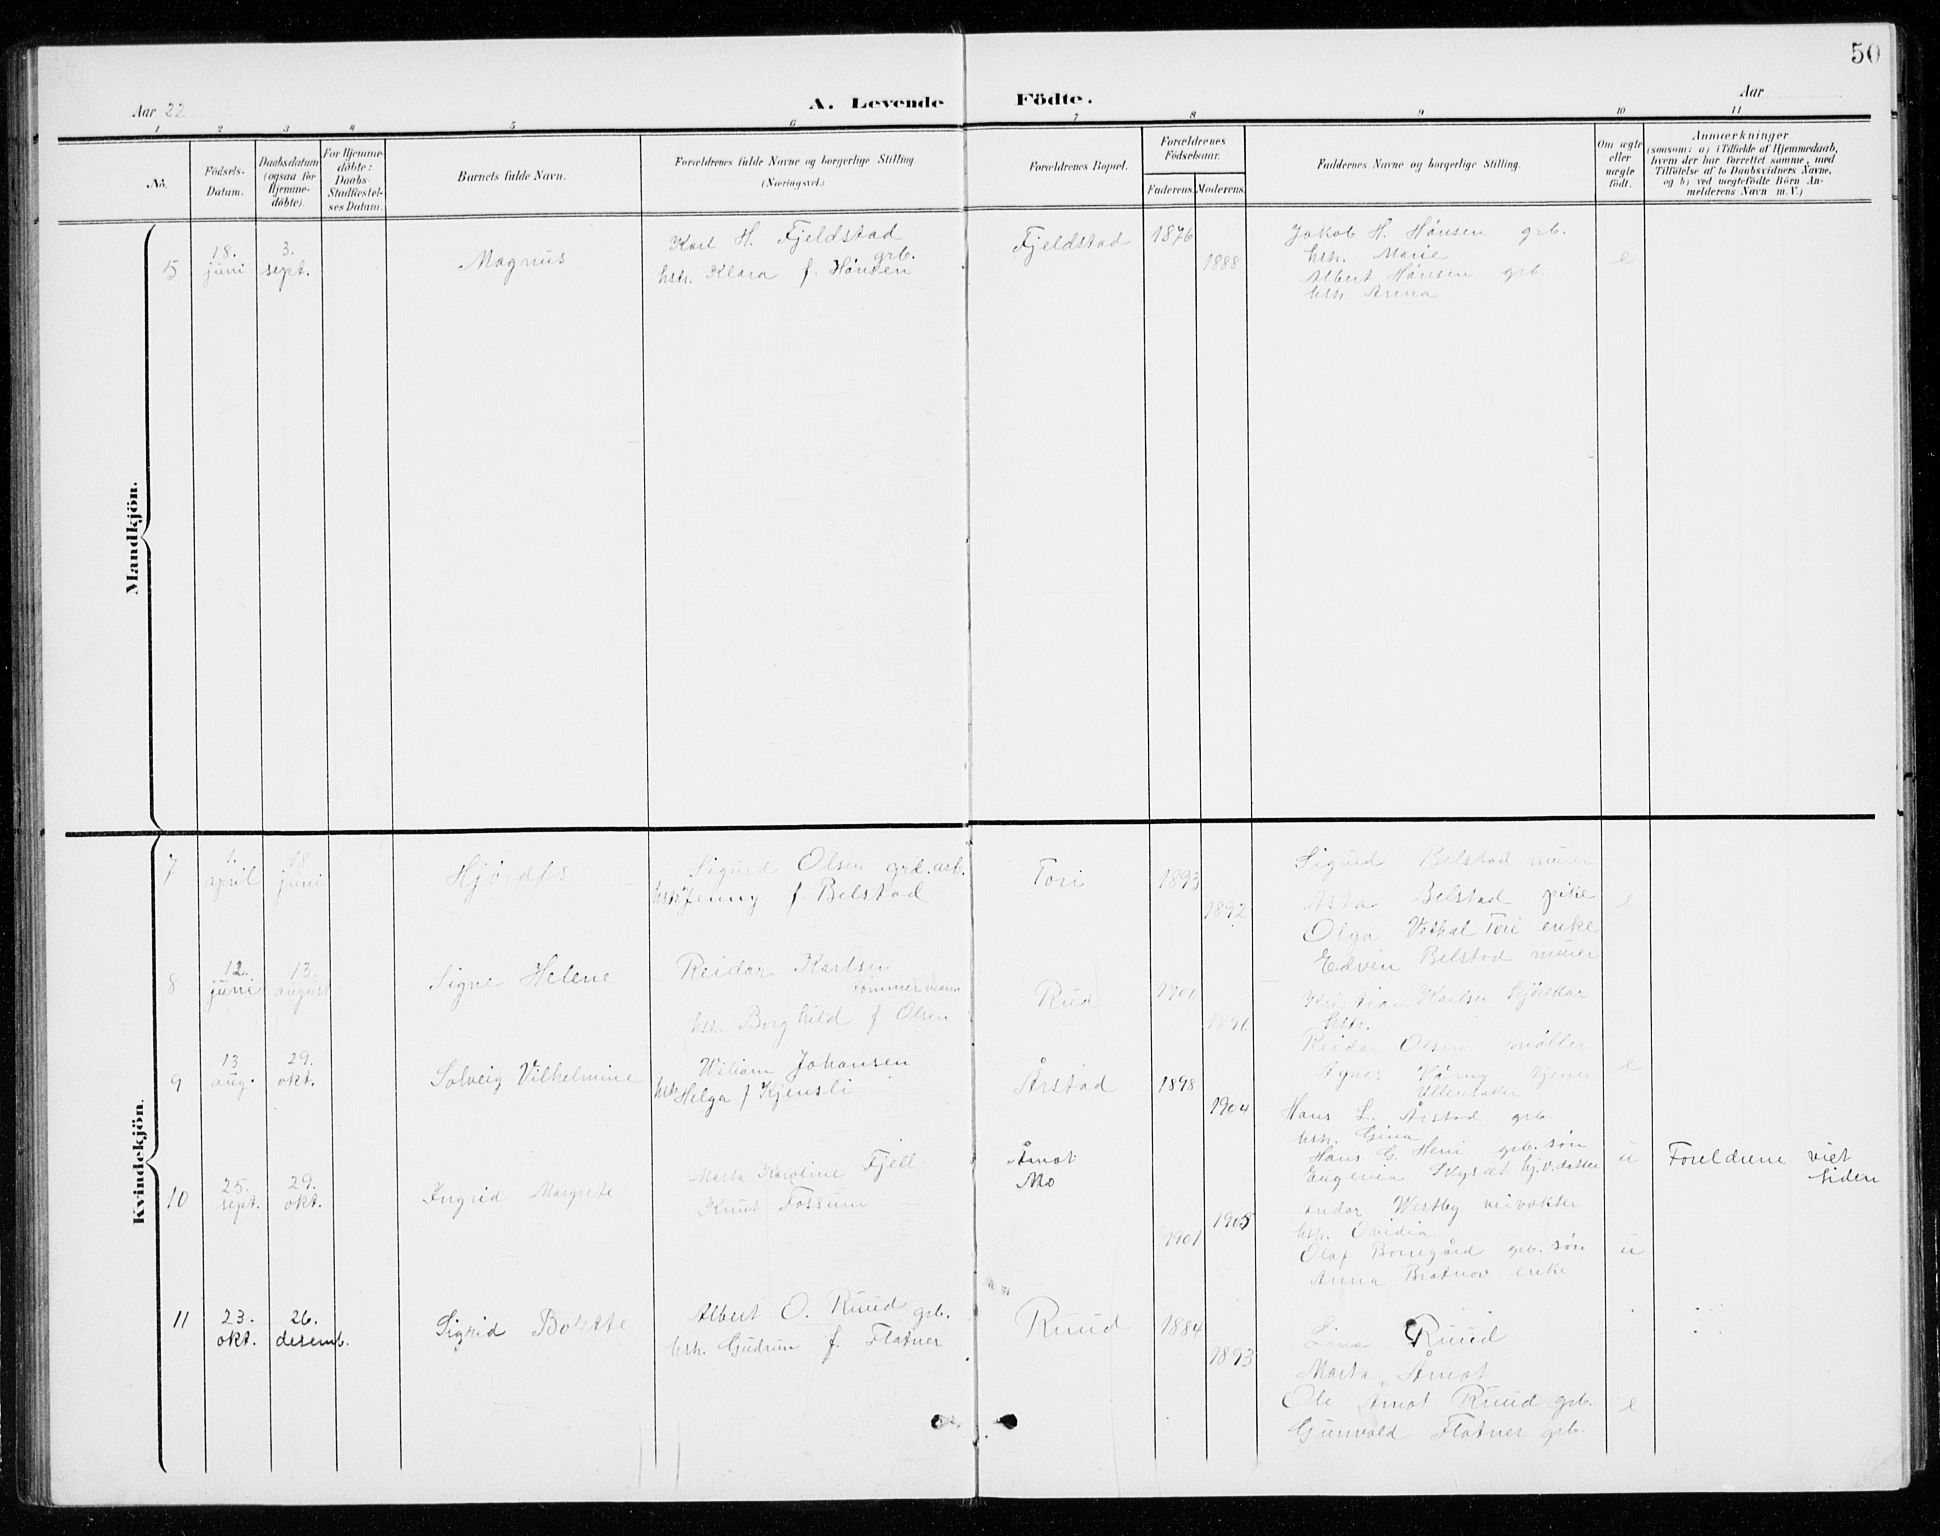 50
Aar 22
A. Levende Födte.
Aar
1 2 3 4 5 6 7 8 9 10 11
No.
Födsels-Datum.
Daabsdatum (ogsaa for Hjemme-döbte).
For Hjemme-döbte: Daabs-Stadfæstel-ses Datum.
Barnets fulde Navn.
Forældrenes fulde Navne og borgerlige Stilling (Næringsvei.)
Forældrenes Bopæl.
Forældrenes Födselsaar.
Faderens. Moderens.
Faddernes Navne og borgerlige Stilling.
Om ægte eller uægte födt.
Anmærkninger
(saasom: a) i Tilfælde af Hjemmedaab,
hvem der har forrettet samme, med
Tilföielse af to Daabsvidners Navne,
og b) ved uægtefödte Börn An-
melderens Navn m. V.)
Mandkjön.
5
18. juni
3. sept.
Magnus
Karl H. Fjeldstad grb.
hstr. Klara f. Hönsen
Fjeldstad
1876
1888
Jakob H. Hönsen grb.
hstr. Marie
Albert Hönsen grb.
hstr. Anna
e
Kvindekjön.
7
1. april
18 juni
Hjørdis
Sigurd Olsen grd.arb.
hstr. Jenny f. Belstad
Tori
1893
1892
Sigurd Belstad murer
Asta Belstad pike
Olga Tori enke
Edvin Belstad murer
e
8
12. juni
13. august
Signe Helene
Reidar Karlsen
tømmermann
hstr. Borghild f. Olsen
Rud
1901
Kristian Karlsen
hstr.
Reidar Olsen møller
Agnes tjener
e
9
13 aug.
29. okt.
Solveig Vilhelmine
Wiliam Johansen
hstr. Helga f Kjensli
Årstad
1898
1904
Hans L. Årstad grb.
hstr. Gina
Hans G. Heni grb. søn
Eugenia
u
Foreldrene viet
siden
10
25. sept.
29. okt.
Ingrid Margrete
Marta Karoline Fjell
Knut Fossum
Åmot
Mo
1905
1901
Andar Westby veivokter
hstr. Ovidia
Olaf Borregård grb. søn
Anna Bratnov enke
u
11
23. okt.
26. desemb.
Sigrid Bolette
Albert O. Ruud grb.
hstr. Gudrun f. Flatner
Ruud
1884
1893
Lina Ruud
Marta Åmot
Ole Åmot Ruud grb.
Gunvald Flatner grb.
e